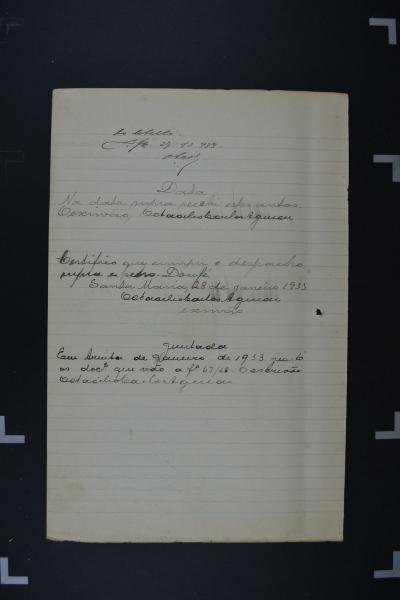 Data
Na data supra recebi estes autos.
O escrivão, Octacilio Carlos Aguiar
Certifico que cumpri o despacho
supra e retro. Dou fé
Santa Maria, 28 de janeiro 1933
Octacilio Carlos Aguiar
escrivão
Juntada
Em trinta de Janeiro de 1933 junto
os docs que vão a fs 67/68. O escrivão
Octacilio Carlos Aguiar